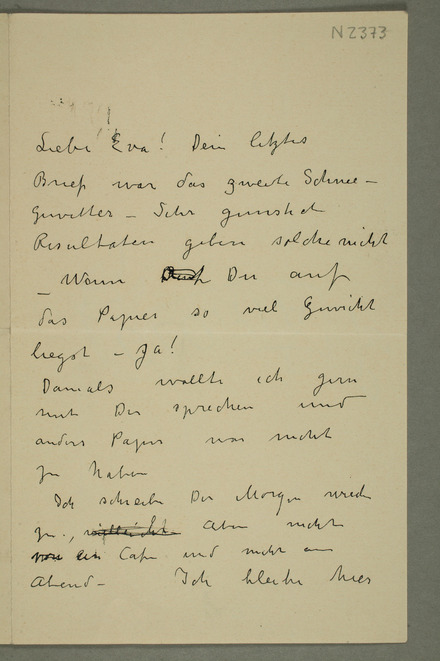 N2373
Liebe Eva! Dein letztes
Brief war das zweite Schnee-
gewitter – Sehr
Resultaten geben solche nicht
– Wenn Du auf
das Papier so viel Gewicht
legst – Ja!
Damals wollte ich gern
mit Dir sprechen und
anders Papier war nicht
zu haben
Ich schreibe Dir Morgen wieder
zu., aber nicht
Cafe und nicht am
Abend – Ich bleibe hier